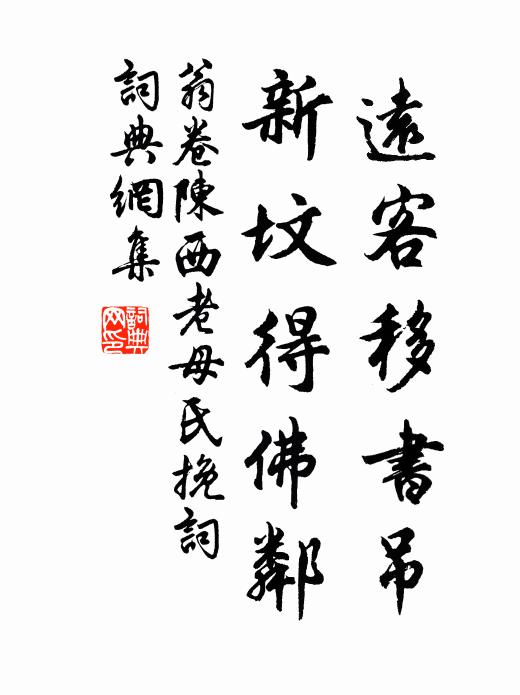 遠客移書吊
新墳得佛鄰
翁卷陳西老母氏挽詞
詞典網集
詞典網印